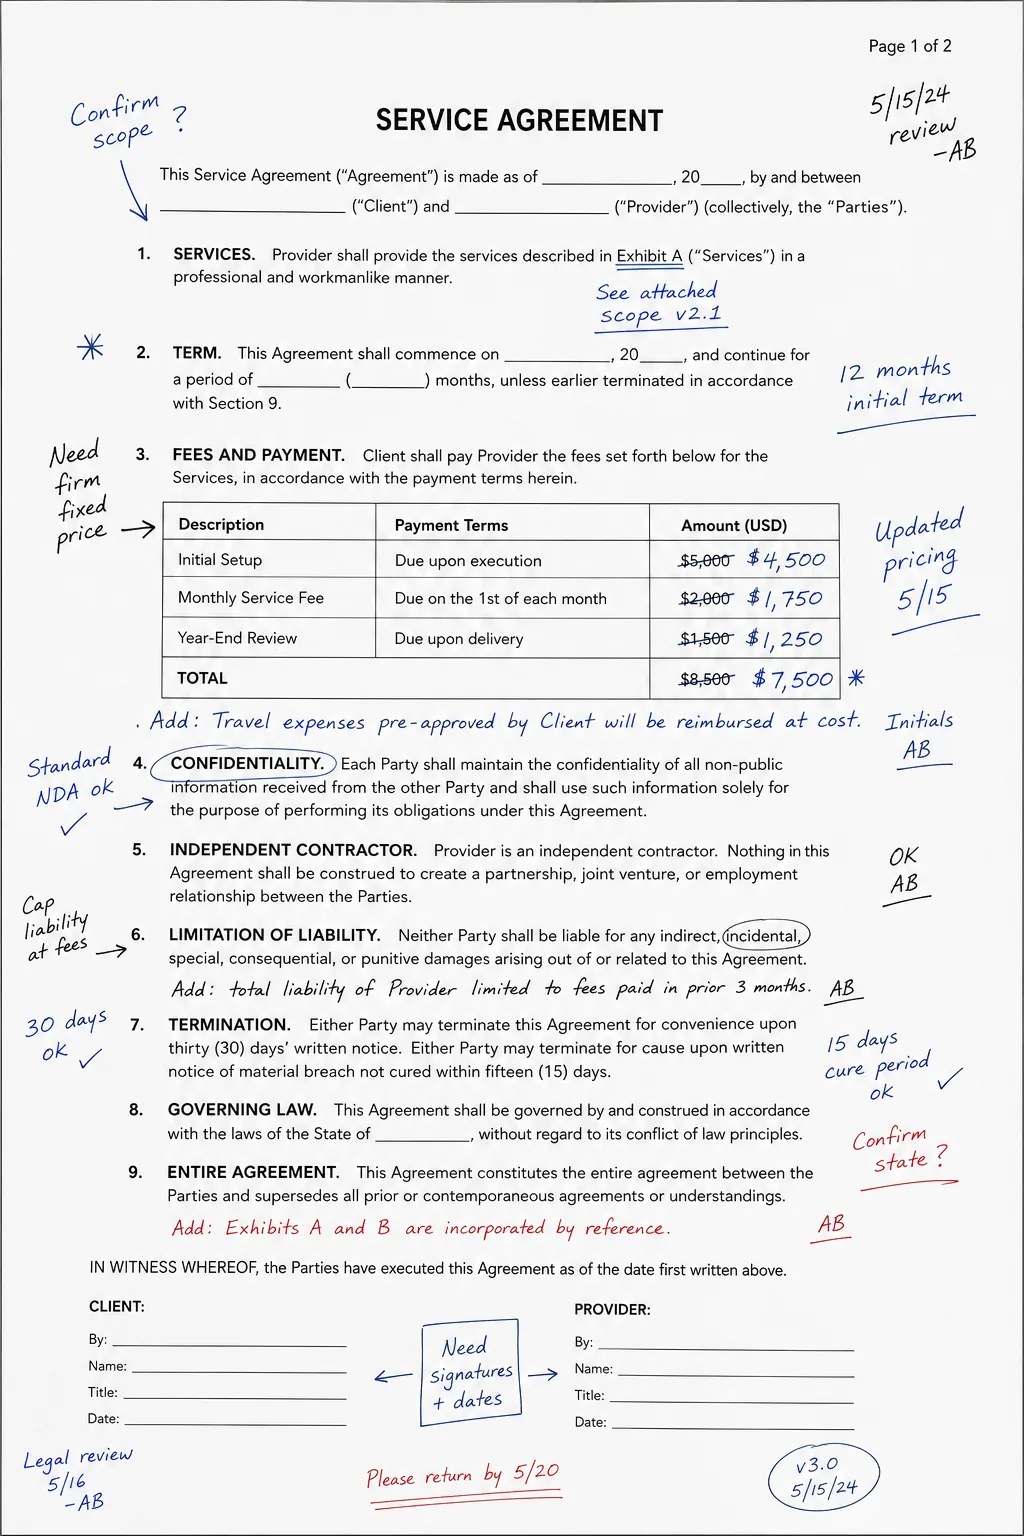 Page 1 of 2
5/15/24
review
-AB
Confirm
scope ?
SERVICE AGREEMENT
This Service Agreement (“Agreement”) is made as of ______________, 20____, by and between
____________________ (“Client”) and ________________ (“Provider”) (collectively, the “Parties”).
1. SERVICES. Provider shall provide the services described in Exhibit A (“Services”) in a
professional and workmanlike manner.
See attached
scope v2.1
*
2. TERM. This Agreement shall commence on ___________, 20____, and continue for
a period of _________ (________) months, unless earlier terminated in accordance
with Section 9.
12 months
initial term
Need
firm
fixed
price
3. FEES AND PAYMENT. Client shall pay Provider the fees set forth below for the
Services, in accordance with the payment terms herein.
Description Payment Terms Amount (USD)
Initial Setup Due upon execution $5,000 $4,500
Monthly Service Fee Due on the 1st of each month $2,000 $1,750
Year-End Review Due upon delivery $1,500 $1,250
TOTAL $8,500 $7,500 *
Updated
pricing
5/15
. Add: Travel expenses pre-approved by Client will be reimbursed at cost.
Initials
AB
Standard
NDA ok
✓
4. CONFIDENTIALITY. Each Party shall maintain the confidentiality of all non-public
information received from the other Party and shall use such information solely for
the purpose of performing its obligations under this Agreement.
5. INDEPENDENT CONTRACTOR. Provider is an independent contractor. Nothing in this
Agreement shall be construed to create a partnership, joint venture, or employment
relationship between the Parties.
OK
AB
Cap
liability
at fees
6. LIMITATION OF LIABILITY. Neither Party shall be liable for any indirect, incidental,
special, consequential, or punitive damages arising out of or related to this Agreement.
Add: total liability of Provider limited to fees paid in prior 3 months. AB
30 days
ok ✓
7. TERMINATION. Either Party may terminate this Agreement for convenience upon
thirty (30) days’ written notice. Either Party may terminate for cause upon written
notice of material breach not cured within fifteen (15) days.
15 days
cure period
ok ✓
8. GOVERNING LAW. This Agreement shall be governed by and construed in accordance
with the laws of the State of __________, without regard to its conflict of law principles.
Confirm
state ?
9. ENTIRE AGREEMENT. This Agreement constitutes the entire agreement between the
Parties and supersedes all prior or contemporaneous agreements or understandings.
Add: Exhibits A and B are incorporated by reference. AB
IN WITNESS WHEREOF, the Parties have executed this Agreement as of the date first written above.
CLIENT:
By: ____________________
Name: ____________________
Title: ____________________
Date: ____________________
Need
signatures
+ dates
PROVIDER:
By: ____________________
Name: ____________________
Title: ____________________
Date: ____________________
Legal review
5/16
-AB
Please return by 5/20
v3.0
5/15/24